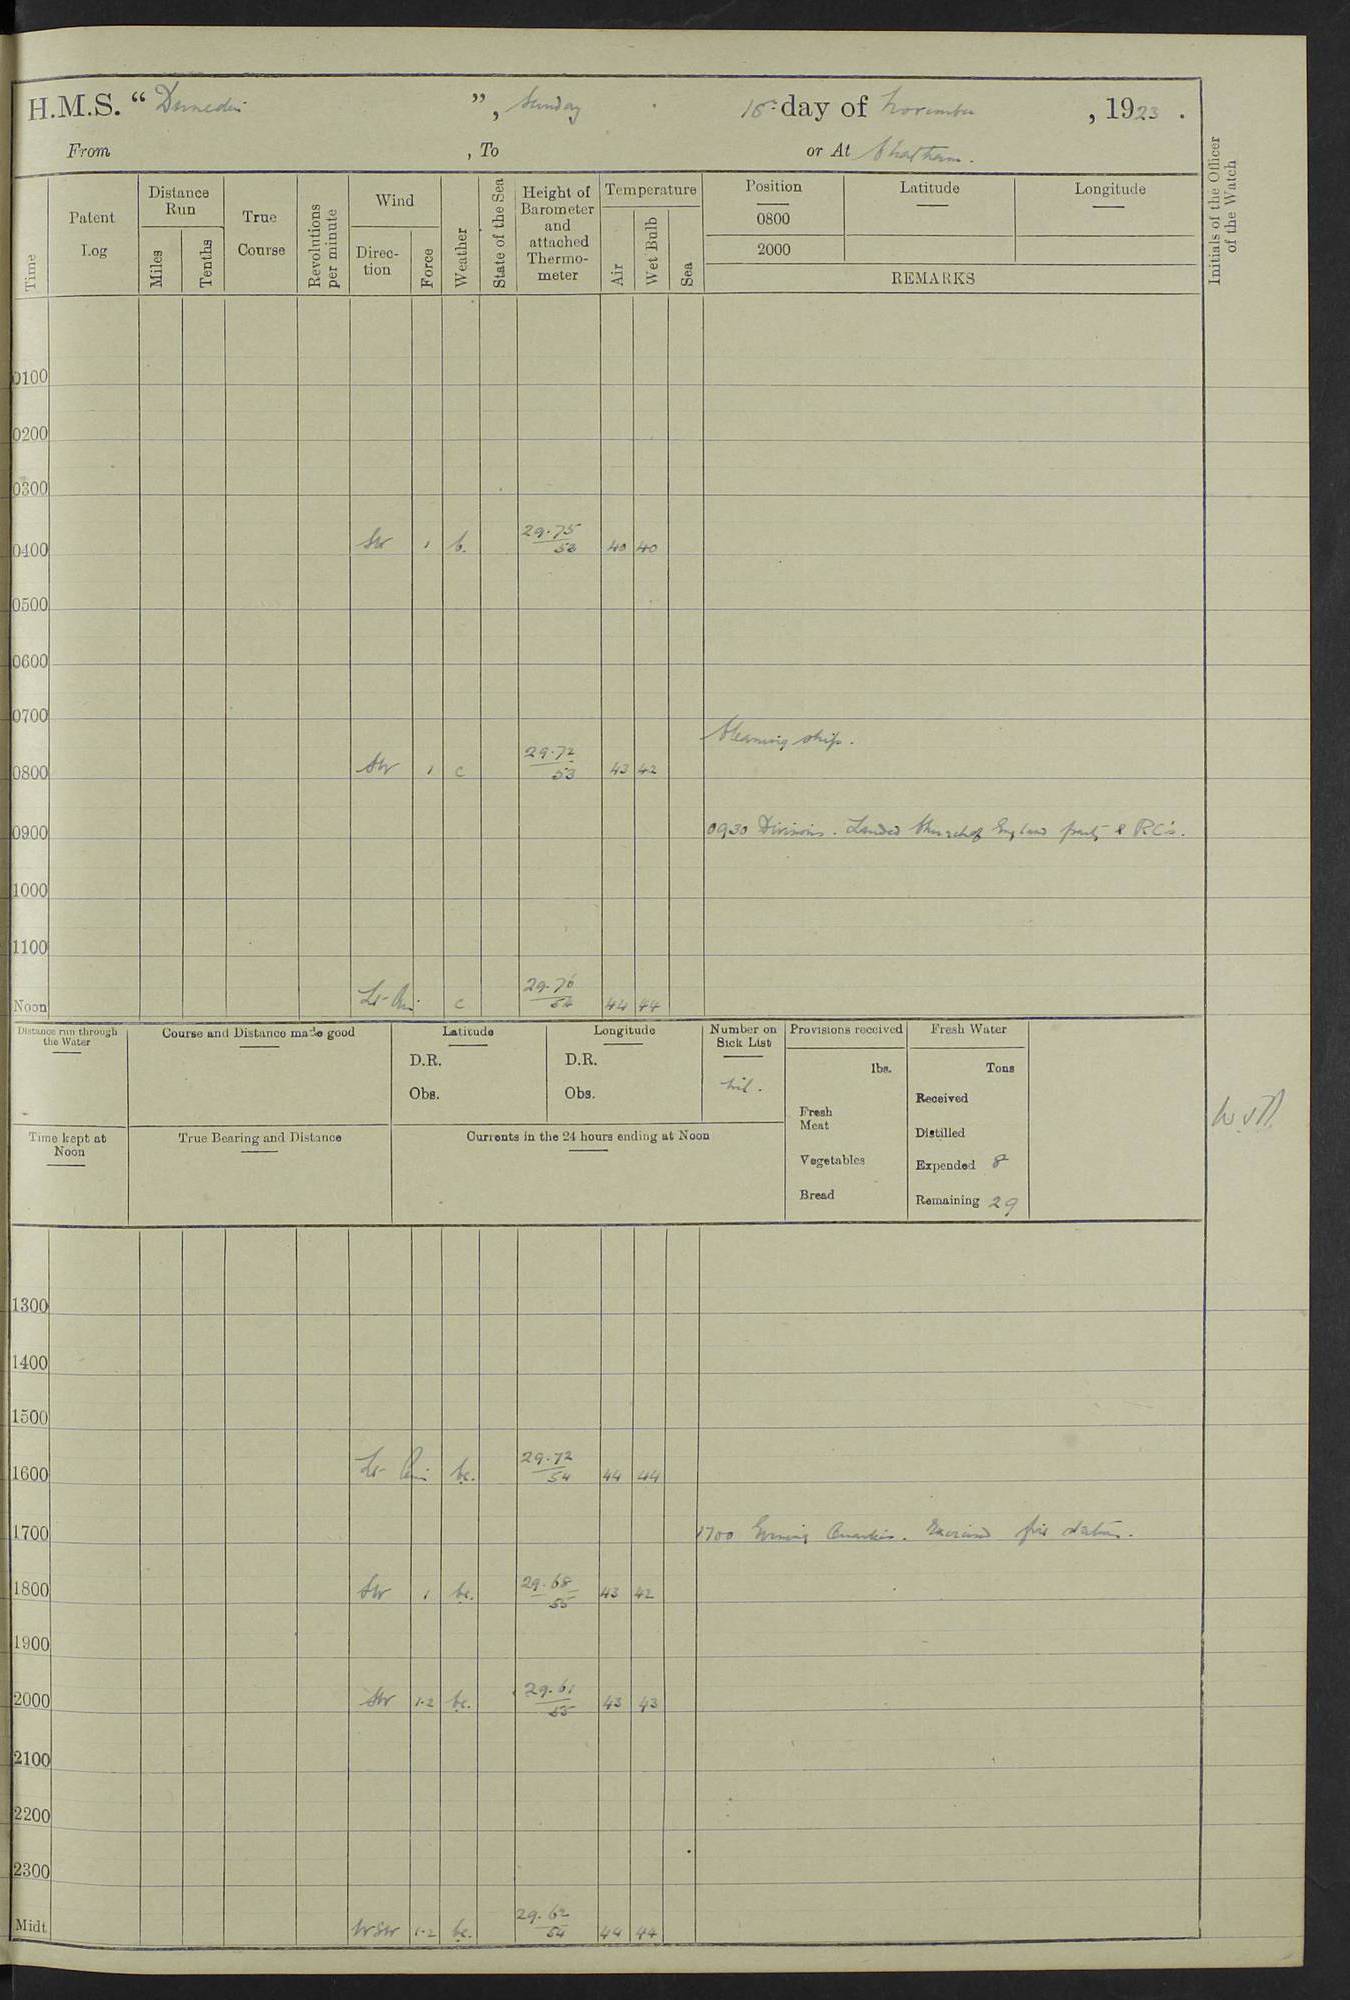 H.M.S. “ Dunedin ”, Sunday 18th day of November, 1923.
From , To or At Chatham.
Time
Patent Log
Distance Run
Miles
Tenths
True Course
Revolutions per minute
Wind
Direc-tion
Force
Weather
State of the Sea
Height of Barometer and attached Thermo-meter
Temperature
Air
Wet Bulb
Sea
Position
0800
2000
Latitude
Longitude
REMARKS
Initials of the Officer of the Watch
0100
0200
0300
0400 SW 1 b. 29.75 53 40 40
0500
0600
0700
Cleaning ship.
0800 SW 1 c 29.72 53 43 42
0900 0930 Divisions. Landed Church of England party & R.C's.
1000
1100
Noon Lt- Airs c 29.76 54 44 44
Distance run through the Water
Course and Distance made good
Latitude
D.R.
Obs.
Longitude
D.R.
Obs.
Number on Sick List
Nil.
Provisions received
lbs.
Fresh Meat
Vegetables
Bread
Fresh Water
Tons
Received
Distilled
Expended 8
Remaining 29
Time kept at Noon
True Bearing and Distance
Currents in the 24 hours ending at Noon
1300
1400
1500
1600 Lt- Airs bc. 29.72 54 44 44
1700 1700 Evening Quarters. Exercised fire stations.
1800 SW 1 bc. 29.68 55 43 42
1900
2000 SW 1-2 bc. 29.61 55 43 43
2100
2200
2300
Midt. WSW 1-2 bc. 29.62 54 44 44